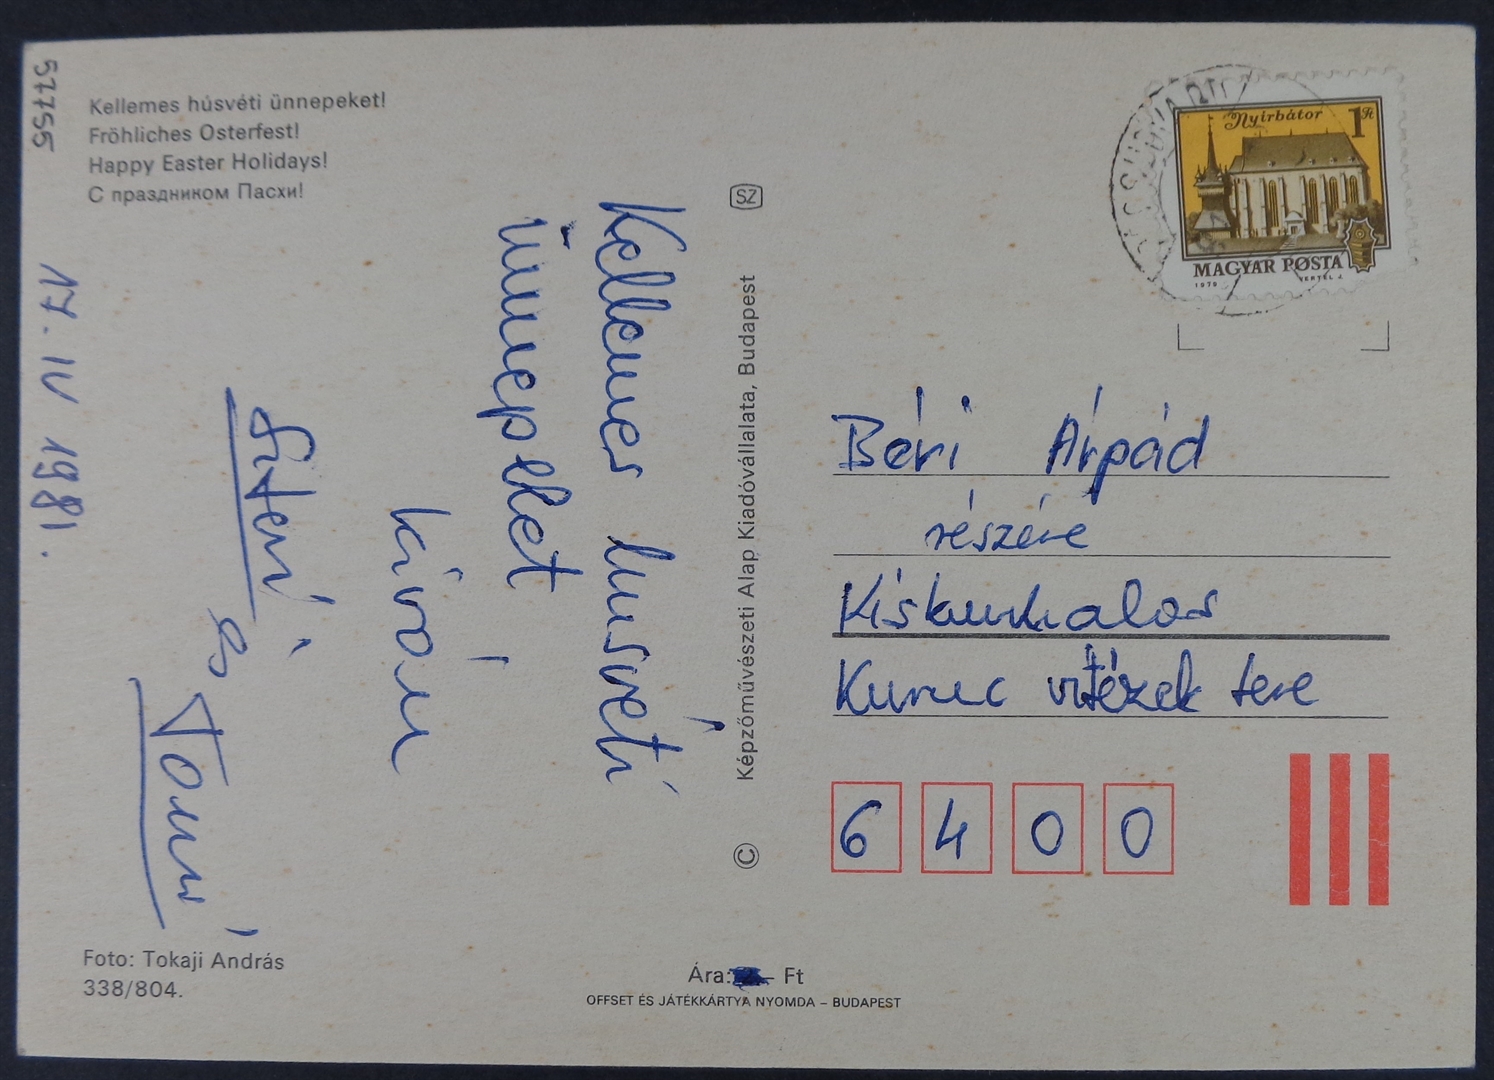 57755
Kellemes húsvéti ünnepeket!
Fröhliches Osterfest!
Happy Easter Holidays!
С праздником Пасхи!
17. IV 1981.
Kellemes husvéti
ünnepeket
kíván
és Tomi
Foto: Tokaji András
338/804.
SZ
Képzőművészeti Alap Kiadóvállalata, Budapest
©
Ára: Ft
OFFSET ÉS JÁTÉKKÁRTYA NYOMDA – BUDAPEST
Nyírbátor 1 Ft
MAGYAR POSTA
1979 VERTEL J.
Béri Árpád
részére
Kiskunhalas
Kuruc vitézek tere
6 4 0 0